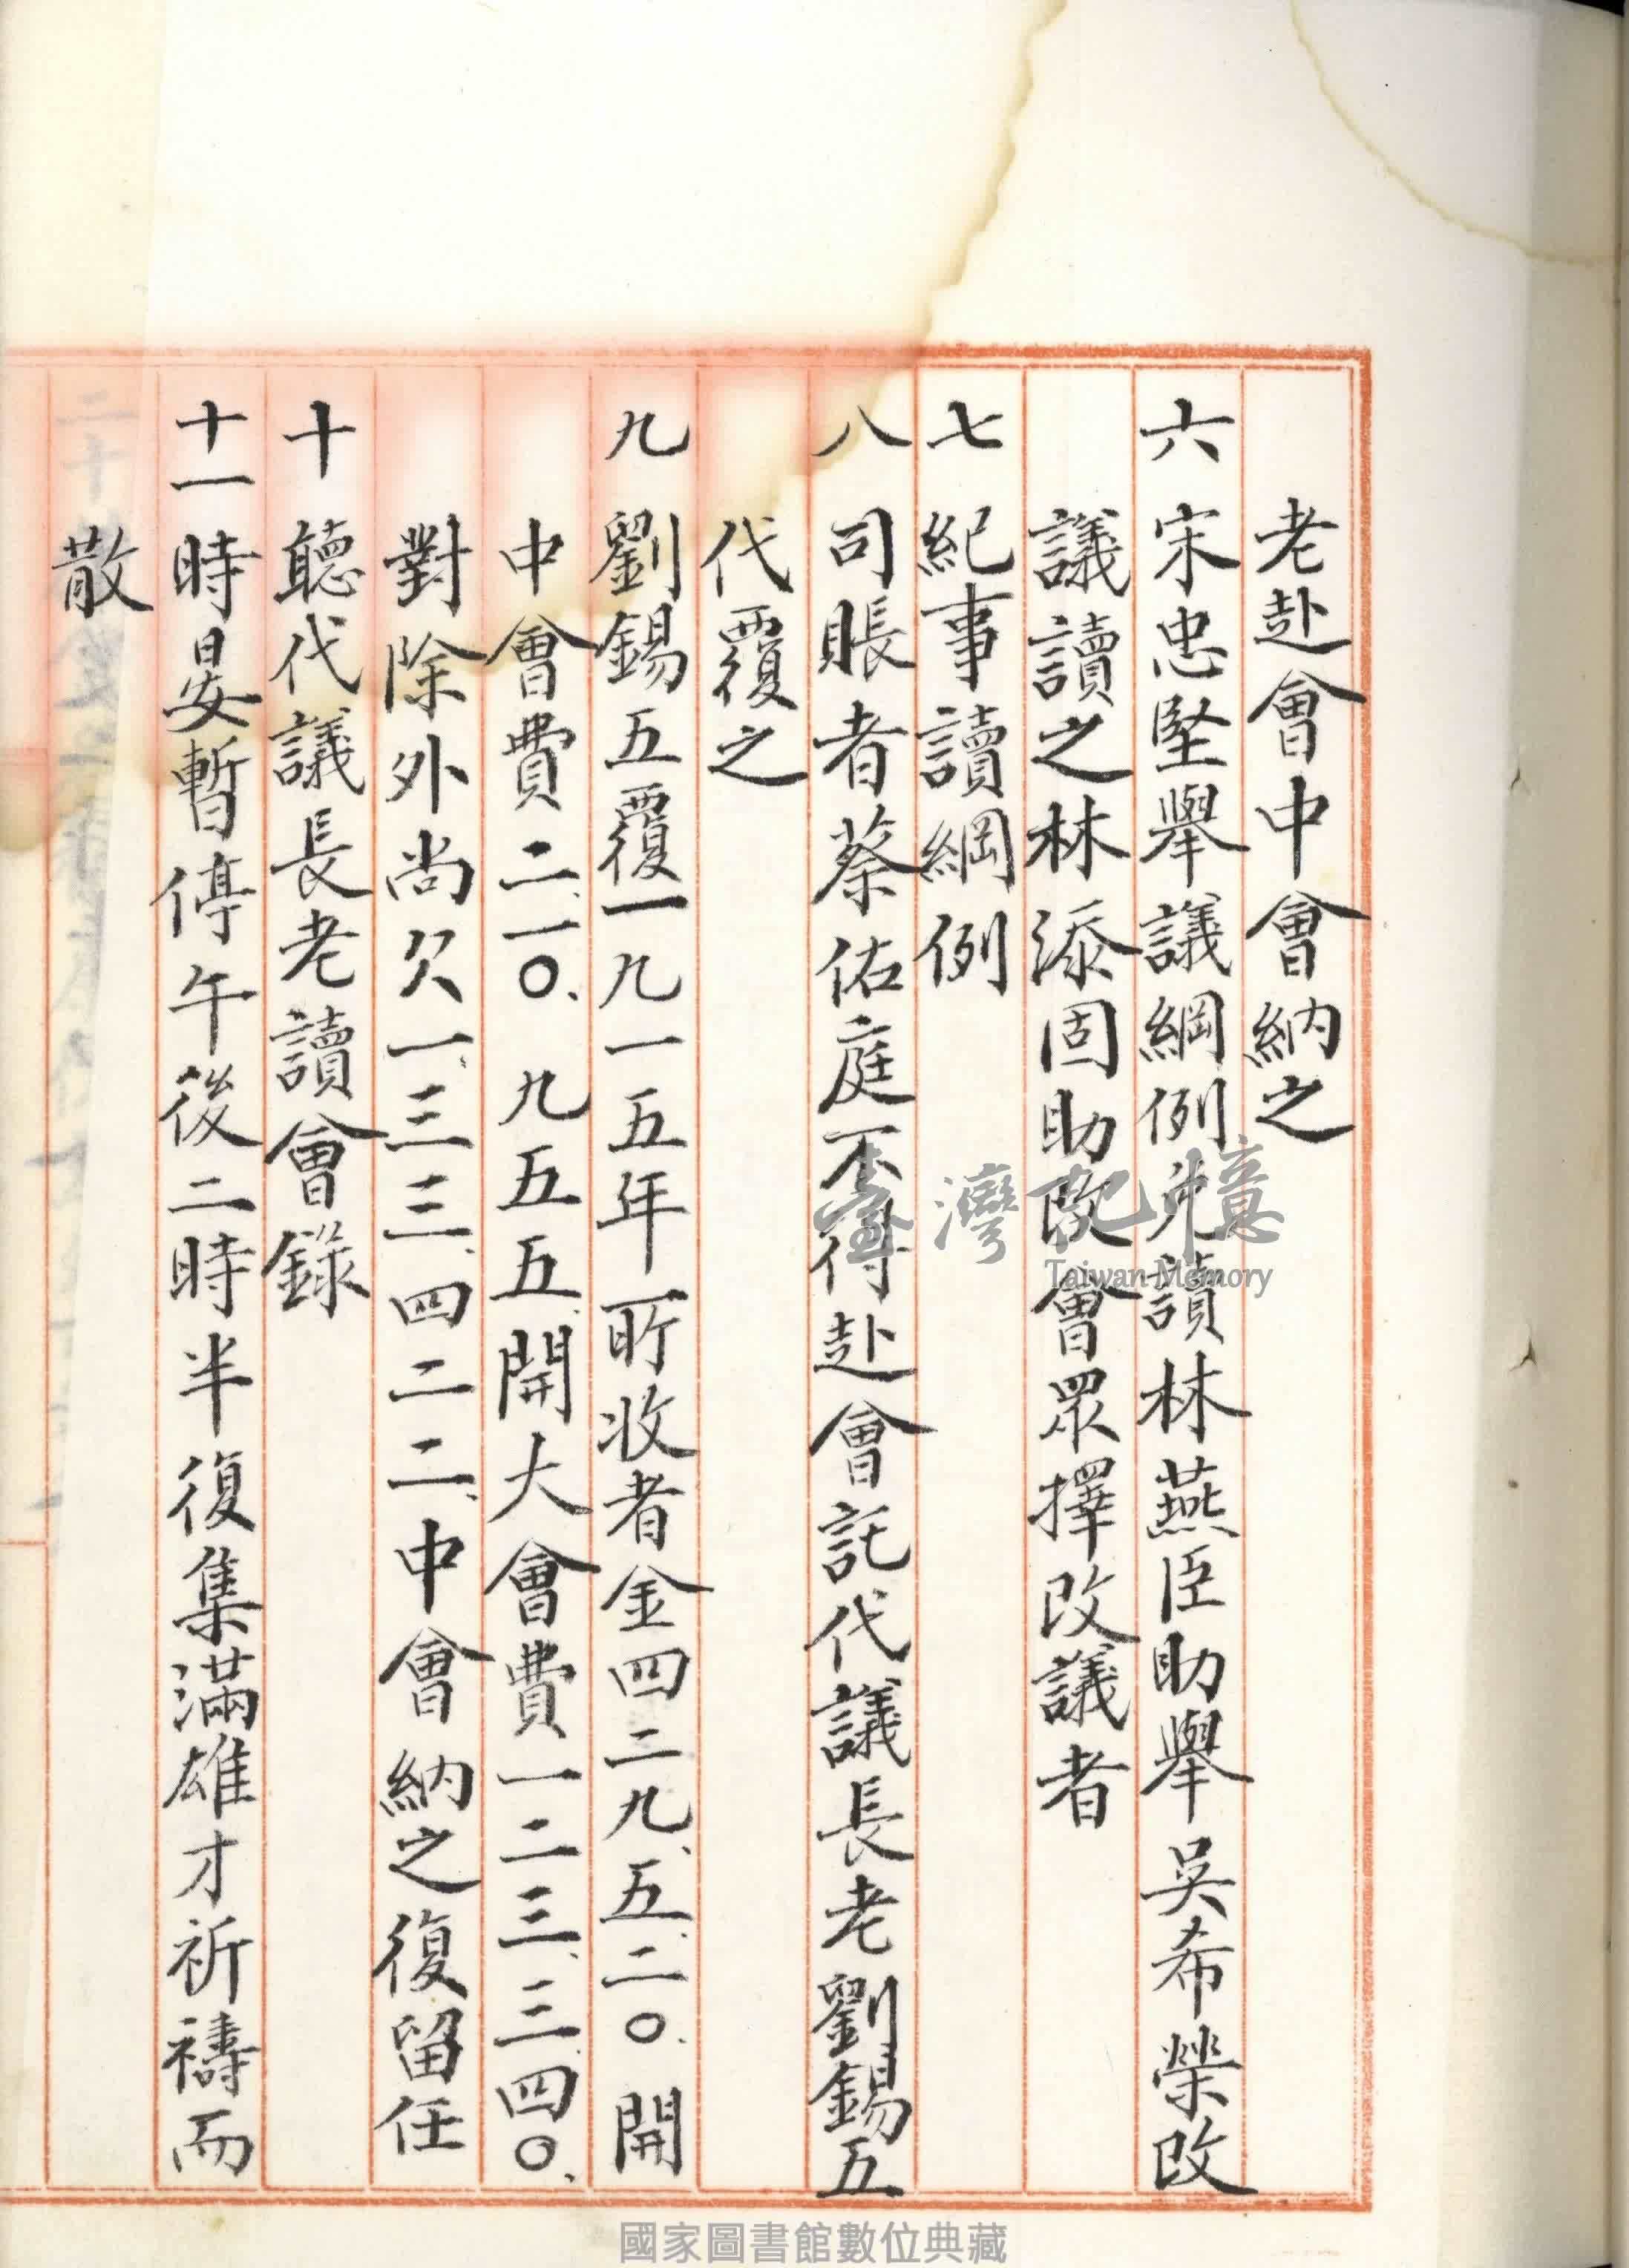 老赴會中會納之
六 宋忠堅舉議綱例免讀林燕臣助舉吳希榮改
議讀之林添固助改會眾擇改議者
七 紀事讀綱例
八 司賬者蔡佑庭不得赴會託代議長老劉錫五
代覆之
九 劉錫五覆一九一五年所收者金四二九、五二〇、開
中會費二、一〇、九五五、開大會費一二三、三四〇、
對除外尚欠一、三三、四二二、中會納之復留任
十 聽代議長老讀會錄
十一 時晏暫停午後二時半復集滿雄才祈禱而
散
臺灣記憶
Taiwan Memory
國家圖書館數位典藏